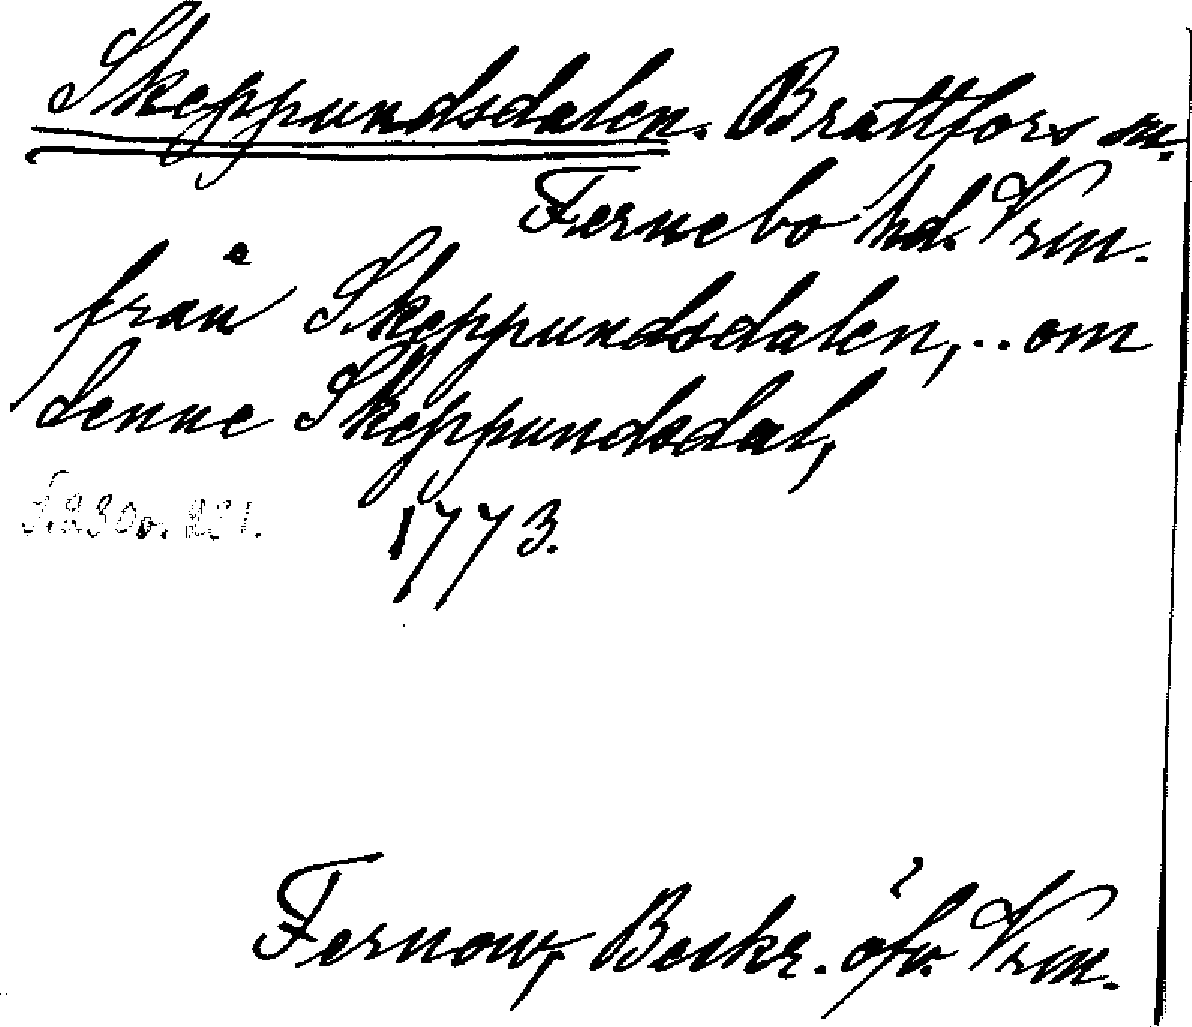 Skeppundsdalen. Brattfors sn.
Fernebo hd. Vrm.
från Skeppundsdalen, .. om
denne Skeppundsdal,
S. 230 o. 231. 1773.
Fernow, Beskr. öfv. Vrm.